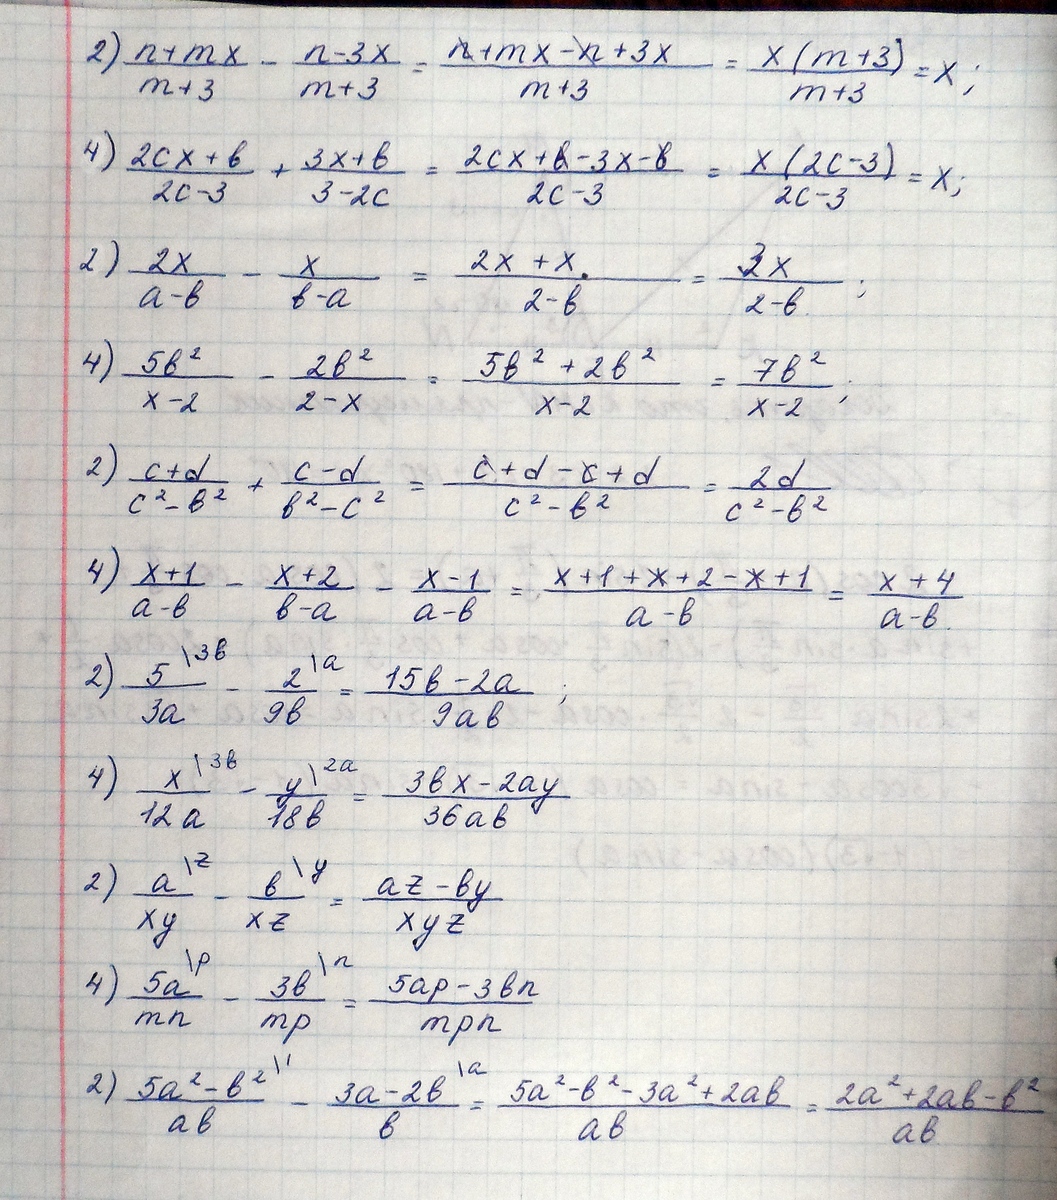 2) (n+mx)/(m+3) - (n-3x)/(m+3) = (n+mx-n+3x)/(m+3) = x(m+3)/(m+3) = x;
4) (2cx+в)/(2c-3) + (3x+в)/(3-2c) = (2cx+в-3x-в)/(2c-3) = x(2c-3)/(2c-3) = x;
2) 2x/(a-в) - x/(в-a) = (2x+x)/(2-в) = 3x/(2-в);
4) 5в²/(x-2) - 2в²/(2-x) = (5в²+2в²)/(x-2) = 7в²/(x-2);
2) (c+d)/(c²-в²) + (c-d)/(в²-c²) = (c+d-c+d)/(c²-в²) = 2d/(c²-в²)
4) (x+1)/(a-в) - (x+2)/(в-a) - (x-1)/(a-в) = (x+1+x+2-x+1)/(a-в) = (x+4)/(a-в)
2) 5\3в/3a - 2\a/9в = (15в-2a)/9aв;
4) x\3в/12a - y\2a/18в = (3вx-2ay)/36aв
2) a\z/xy - в\y/xz = (az-вy)/xyz
4) 5a\p/mn - 3в\n/mp = (5ap-3вn)/mpn
2) (5a²-в²)\1/aв - (3a-2в)\a/в = (5a²-в²-3a²+2aв)/aв = (2a²+2aв-в²)/aв